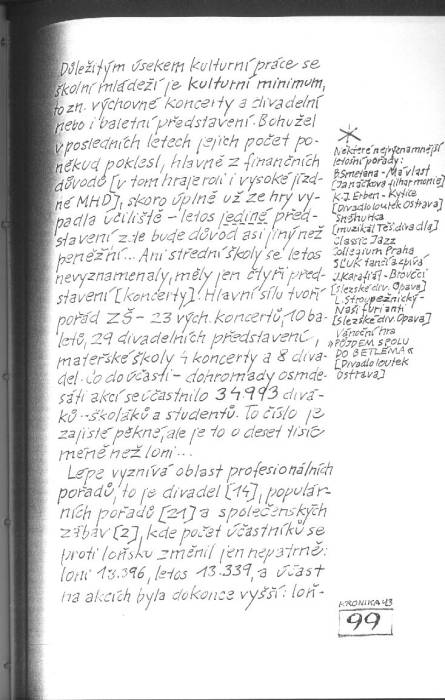 Důležitým úsekem kulturní práce se
školní mládeží je kulturní minimum,
to zn. výchovné koncerty a divadelní
nebo i baletní představení. Bohužel
v posledních letech jejich počet po-
někud poklesl, hlavně z finančních
důvodů [v tom hraje roli i vysoké jízd-
né MHD], skoro úplně už ze hry vy-
padla učiliště – letos jediné před-
stavení z.te bude důvod asi jiný než
peněžní... Ani střední školy se letos
nevyznamenaly, měly jen čtyři před-
stavení [koncerty]. Hlavní sílu tvoří
pořád ZŠ – 23 vých. koncertů, 10 ba-
letů, 29 divadelních představení,
mateřské školy 4 koncerty a 8 diva-
del. Co do účasti – dohromady osmde-
sáti akcí se účastnilo 34 993 divá-
ků – školáků a studentů. To číslo je
zajisté pěkné, ale je to o deset tisíc
méně než loni...
Lépe vyznívá oblast profesionálních
pořadů, to je divadel [14], populár-
ních pořadů [21] a společenských
zábav [2], kde počet účastníků se
proti loňsku změnil jen nepatrně:
loni 13.396, letos 13.339, a účast
na akcích byla dokonce vyšší: loň-
*
Některé nejvýznamnější
letošní pořady:
B. Smetana - Má vlast
[Janáčkova filharmonie]
K.J. Erben - Kytice
[Divadlo loutek Ostrava]
Sněhurka
[muzikál Těš. divadla]
Classic Jazz
Collegium Praha
SĽUK tančí a zpívá
J. Karafiát - Broučci
[Slezské div. Opava]
L. Stroupežnický -
Naši furianti
[Slezské div. Opava]
Vánoční hra
»PŮJDEM SPOLU
DO BETLÉMA«
[Divadlo loutek
Ostrava]
KRONIKA 93
99